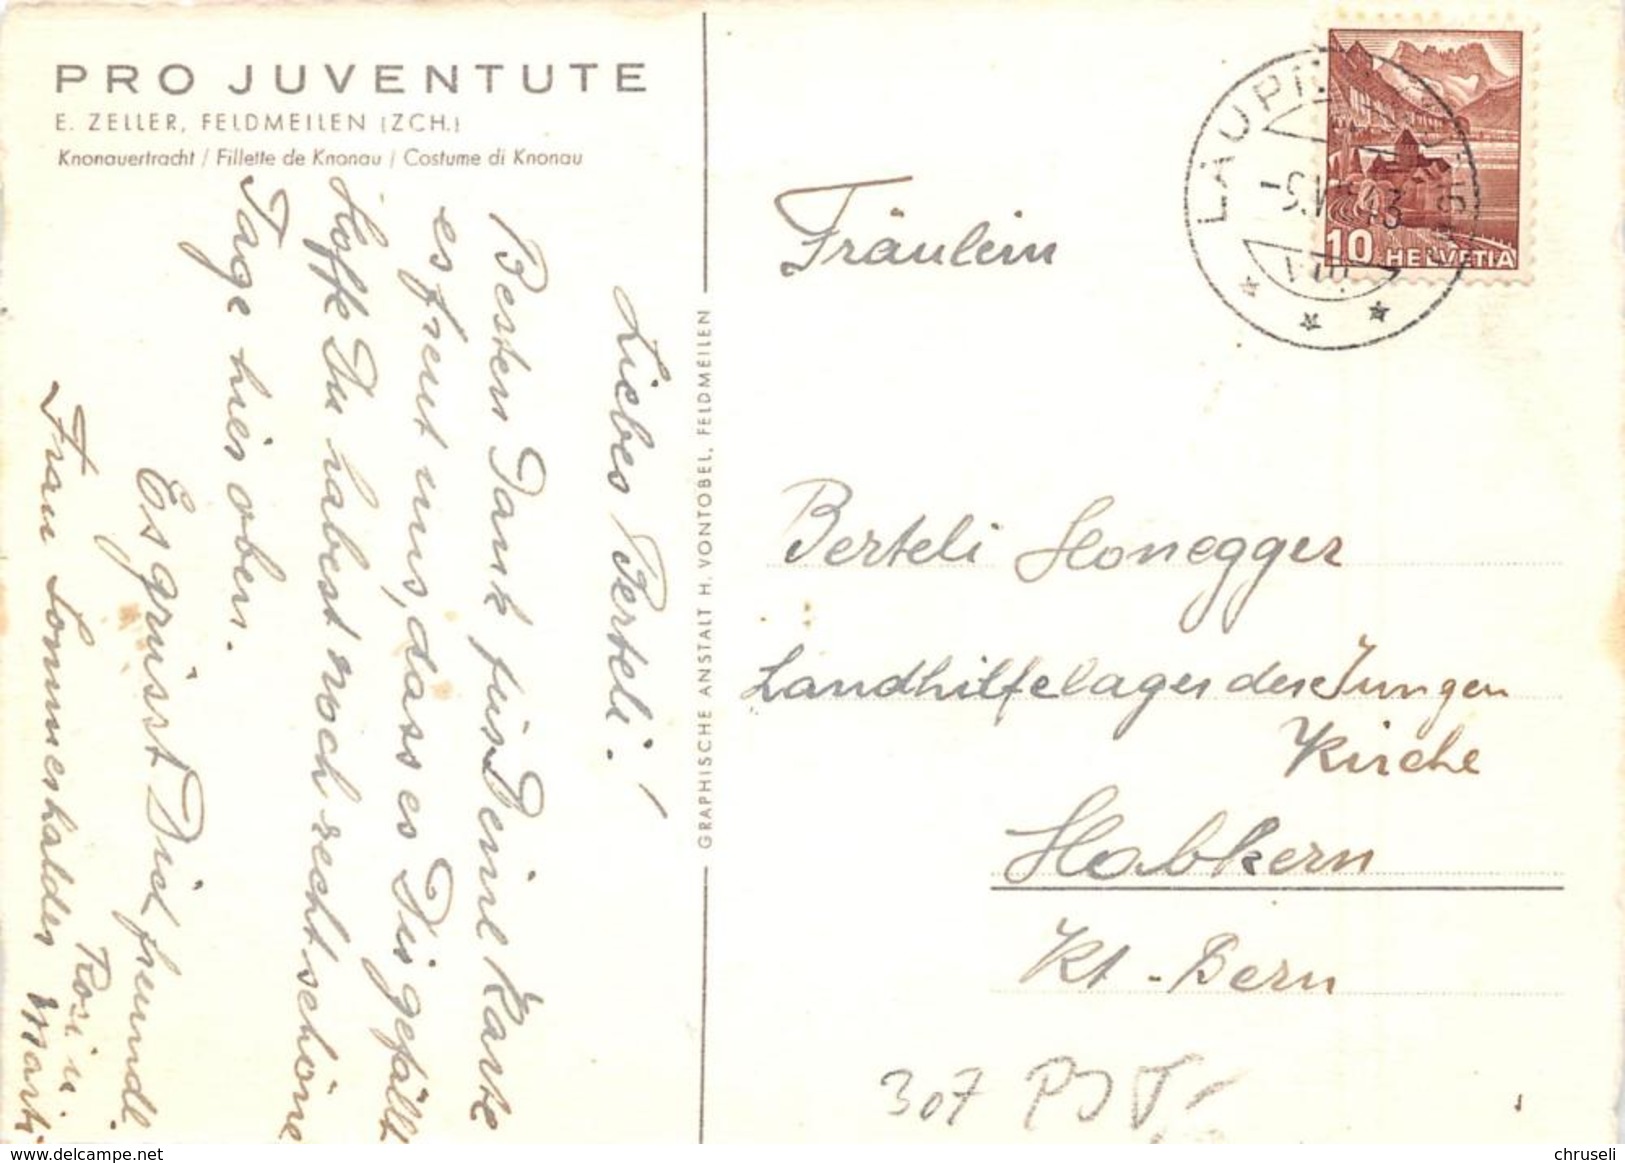 PRO JUVENTUTE
E. ZELLER, FELDMEILEN (ZCH.)
Knonauertracht / Fillette de Knonau / Costume di Knonau
Liebes Berteli!
Besten Dank für Deine Karte
es freut uns, dass es Dir gefällt
Hoffe Du habest noch recht schöne
Tage hier oben.
Es grüsst Dich freundl.
Rosi u.
Frau Sommerhalder Marti
GRAPHISCHE ANSTALT H. VONTOBEL, FELDMEILEN
10 HELVETIA
Fräulein
Berteli Honegger
Landhilfelager der Jungen
Kirche
Habkern
Kt. Bern
307 PJV
delcampe.net
chruseli